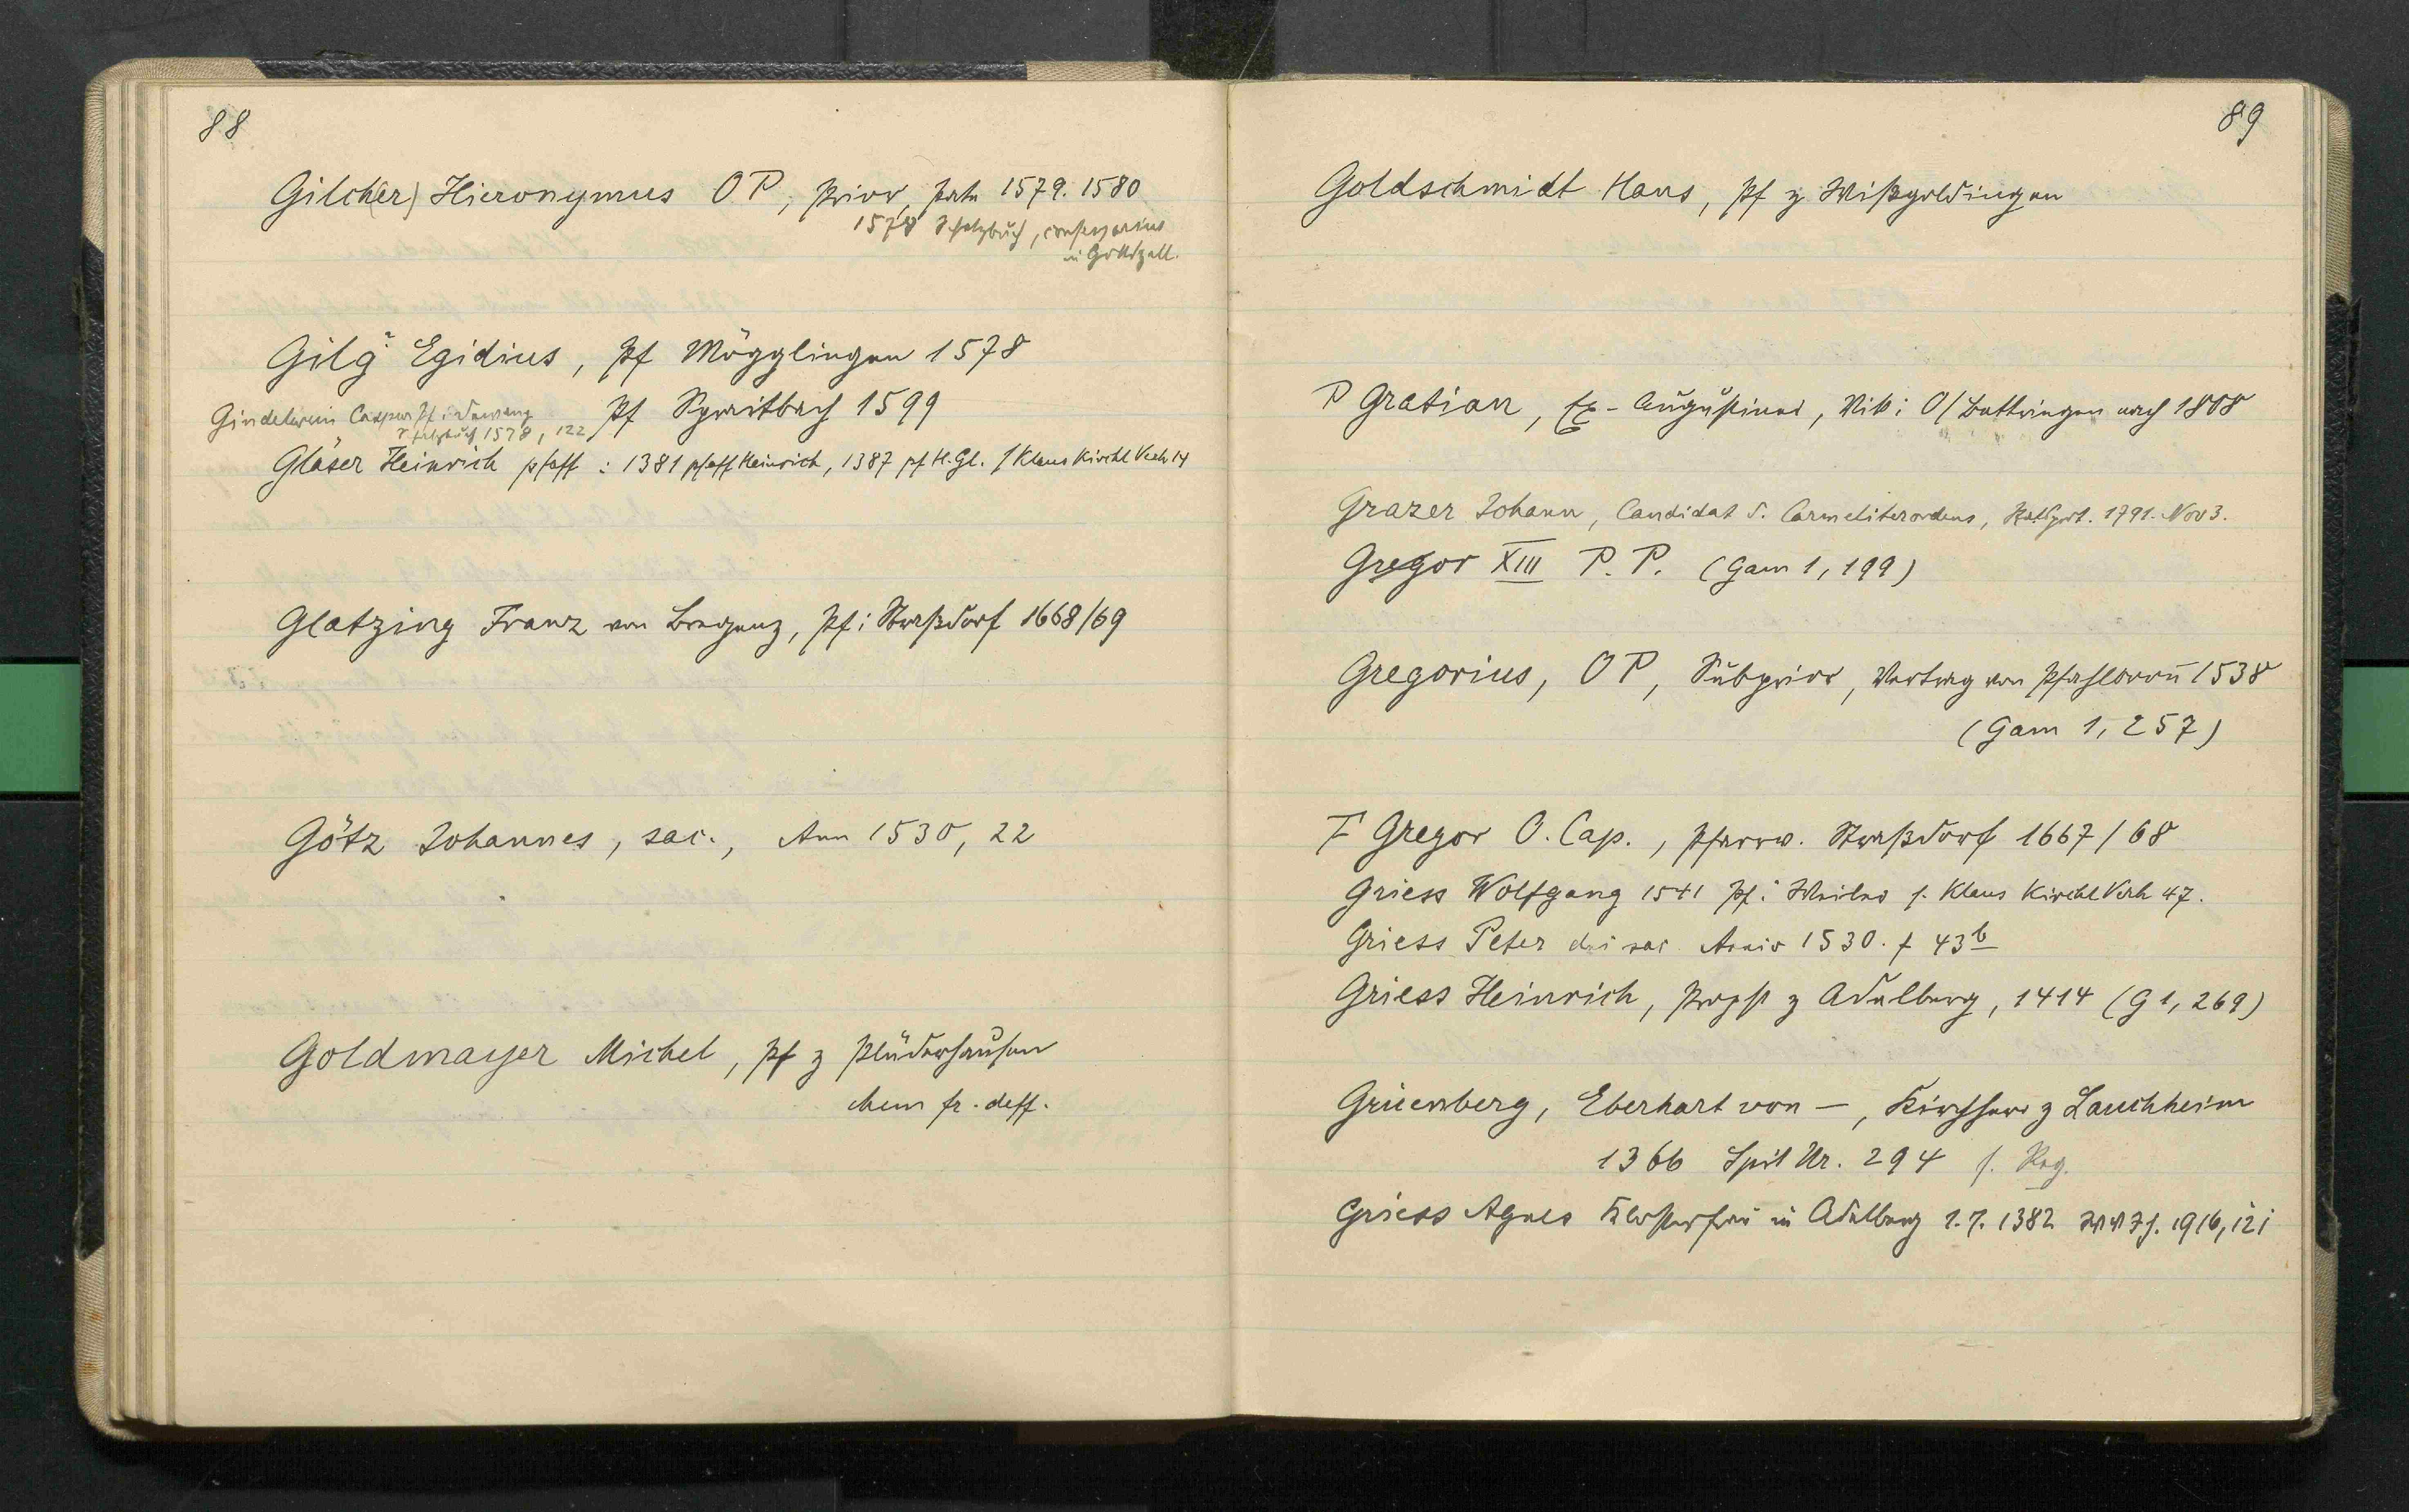 88
Gilch(er) Hieronymus OP, Prior, 1579. 1580
1578 Schatzbuch, confessarius
in Gotteszell.
Gilg Egidius, Pf Mögglingen 1578
Pf Spraitbach 1599
Caspar Pf
1578, 122
Gläser Heinrich pfaff : 1381 pfaff Heinrich, 1387 pf H. Gl. / Klaus Kirchl Verh 14
Glatzing Franz von Bregenz, Pf i Straßdorf 1668/69
Götz Johannes, sac., Ann 1530, 22
Goldmayer Michel, Pf z Plüderhausen
chem fr. deff.
89
Goldschmidt Hans, Pf z Wißgoldingen
P Gratian, Ex-Augustiner, Vik i O/Bettringen nach 1808
Grazer Johann, Candidat d. Carmeliterordens, Ratsprot. 1791. Nov 3.
Gregor XIII P. P. (Gam 1, 199)
Gregorius, OP, Subprior, Vertrag von Pfahlbronn 1538
(Gam 1, 257)
F Gregor O. Cap., Pfarrv. Straßdorf 1667/68
Griess Wolfgang 1541 Pf i Weiler s. Klaus Kirchl Verh 47.
Griess Peter dni sac. Anniv 1530. f 43b
Griess Heinrich, Propst z Adelberg, 1414 (G 1, 269)
Grüenberg, Eberhart von –, Kirchherr z Lauchheim
1366 Spit Ur. 294 s. Reg.
Griess Agnes Klosterfrau in Adelberg 1.7. 1382 1916, 121